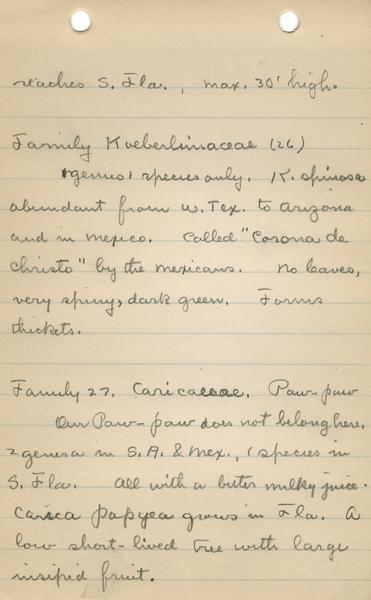 reaches S. Fla., max. 30' high.
Family Koeberliniaceae (26)
1 genus 1 species only. K. spinosa
abundant from w. Tex. to Arizona
and in Mexico. Called "Corona de
Christo" by the Mexicans. No leaves,
very spiny, dark green. Forms
thickets.
Family 27. Caricaceae. Paw-paw
Our Paw-paw does not belong here.
2 genera in S.A. & Mex., 1 species in
S. Fla. All with a bitter milky juice.
Carica papyea grows in Fla. A
low short-lived tree with large
insipid fruit.